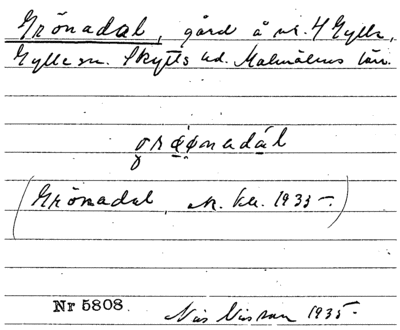 Grönadal, gård å nr. 4 Gylle,
Gylle sn. Skytts hd. Malmöhus län.
grǿǿnadál
(Grönadal, 1935.)
Nr 5808. Nils Nilsson 1935.